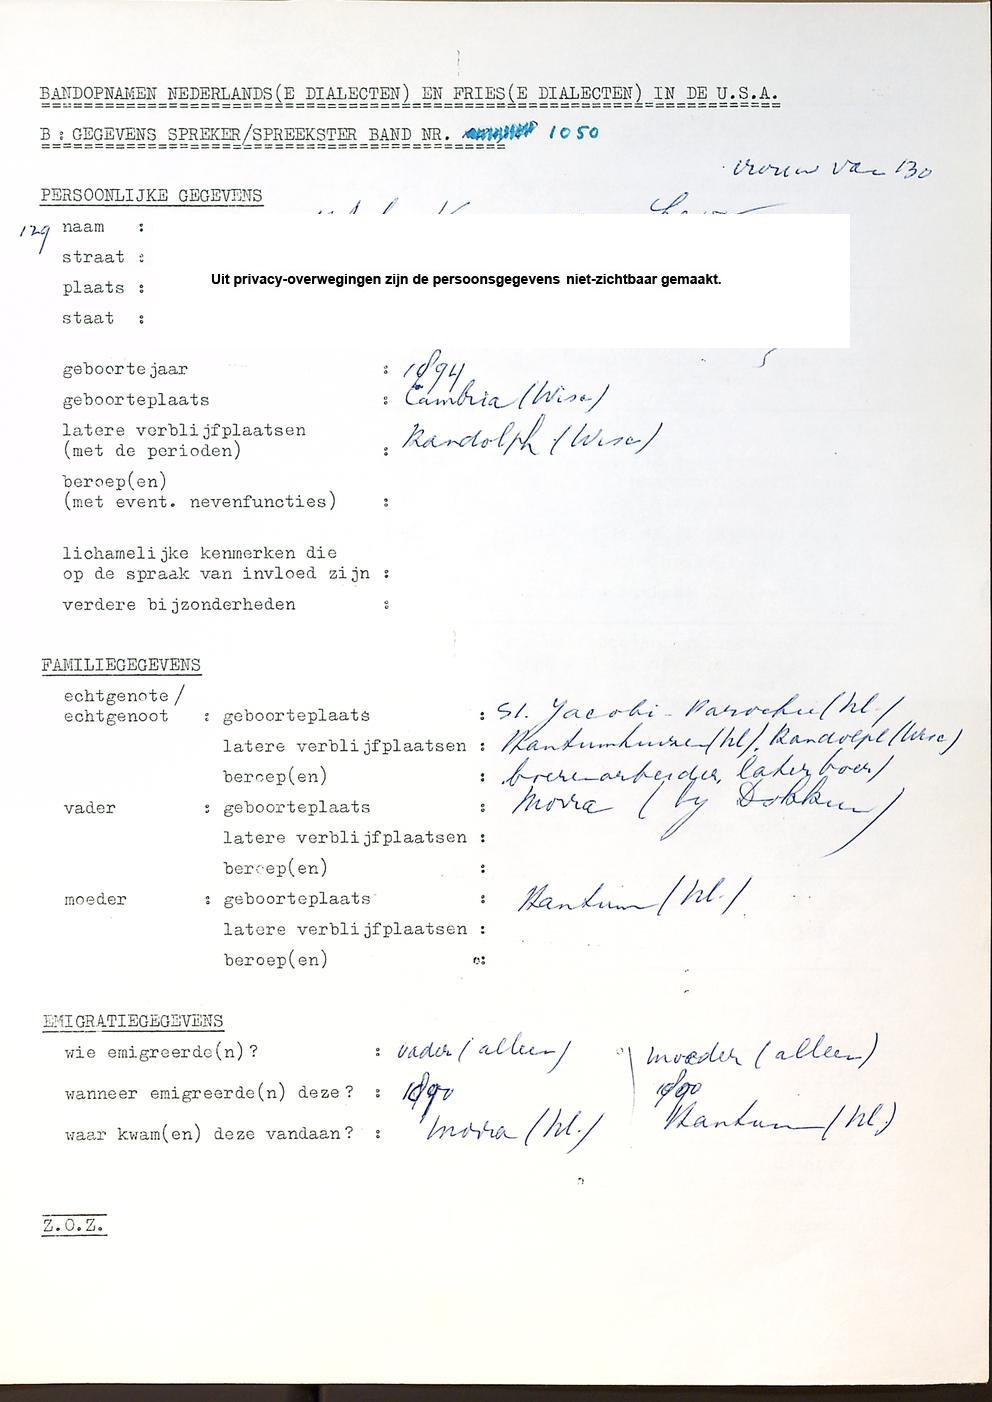 BANDOPNAMEN NEDERLANDS(E DIALECTEN) EN FRIES(E DIALECTEN) IN DE U.S.A.
B : GEGEVENS SPREKER/SPREEKSTER BAND NR. 1050
vrouw van 130
PERSOONLIJKE GEGEVENS
129 naam :
straat :
Uit privacy-overwegingen zijn de persoonsgegevens niet-zichtbaar gemaakt.
plaats :
staat :
geboortejaar : 1894
geboorteplaats : Cambria (Wisc)
latere verblijfplaatsen
(met de perioden) : Randolph (Wisc)
beroep(en)
(met event. nevenfuncties) :
lichamelijke kenmerken die
op de spraak van invloed zijn :
verdere bijzonderheden :
FAMILIEGEGEVENS
echtgenote/
echtgenoot : geboorteplaats : St. Jacobi-Parochie (Nl.)
latere verblijfplaatsen : (Nl), Randolph (Wisc)
beroep(en) : boerenarbeider, later boer
vader : geboorteplaats : Morra (by Dokkum)
latere verblijfplaatsen :
beroep(en) :
moeder : geboorteplaats : Hantum (Nl.)
latere verblijfplaatsen :
beroep(en) :
EMIGRATIEGEGEVENS
wie emigreerde(n)? : vader (alleen) moeder (alleen)
wanneer emigreerde(n) deze? : 1890 1890
waar kwam(en) deze vandaan? : Morra (Nl.) Hantum (Nl.)
Z.O.Z.